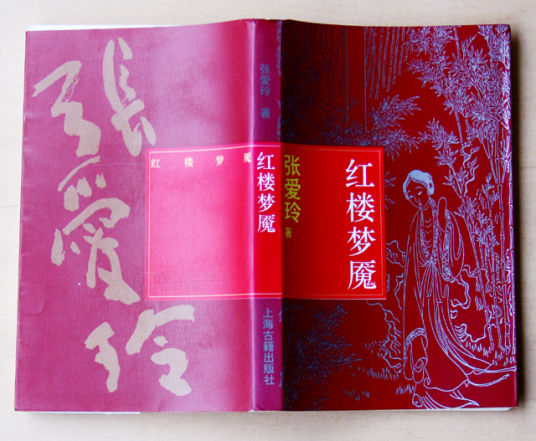 張愛玲
红楼梦魇
张爱玲 著
红楼梦魇
上海古籍出版社
张爱玲
著
红楼梦魇